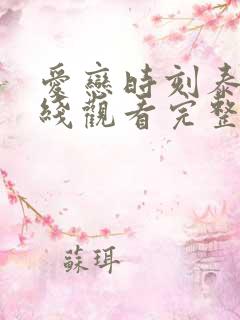 愛戀時刻泰
綫觀看完整
蘇珥